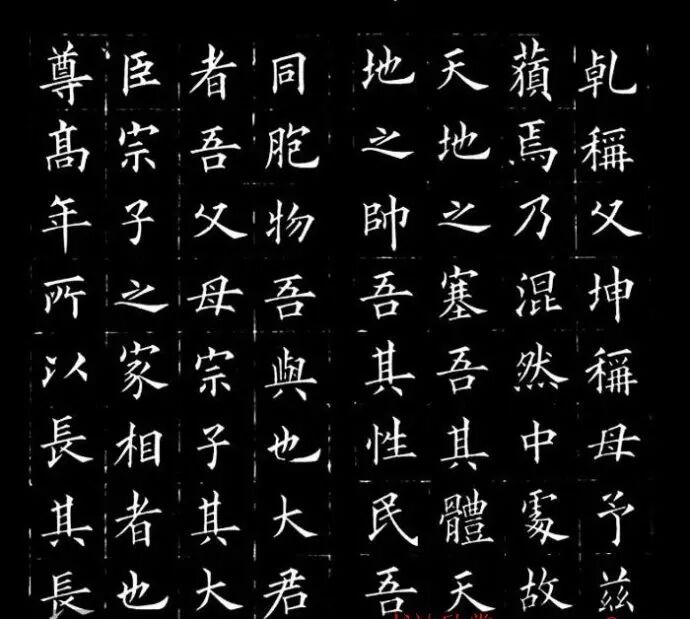 乾稱父坤稱母予茲
藐焉乃混然中處故
天地之塞吾其體天
地之帥吾其性民吾
同胞物吾與也大君
者吾父母宗子其大
臣宗子之家相者也
尊高年所以長其長